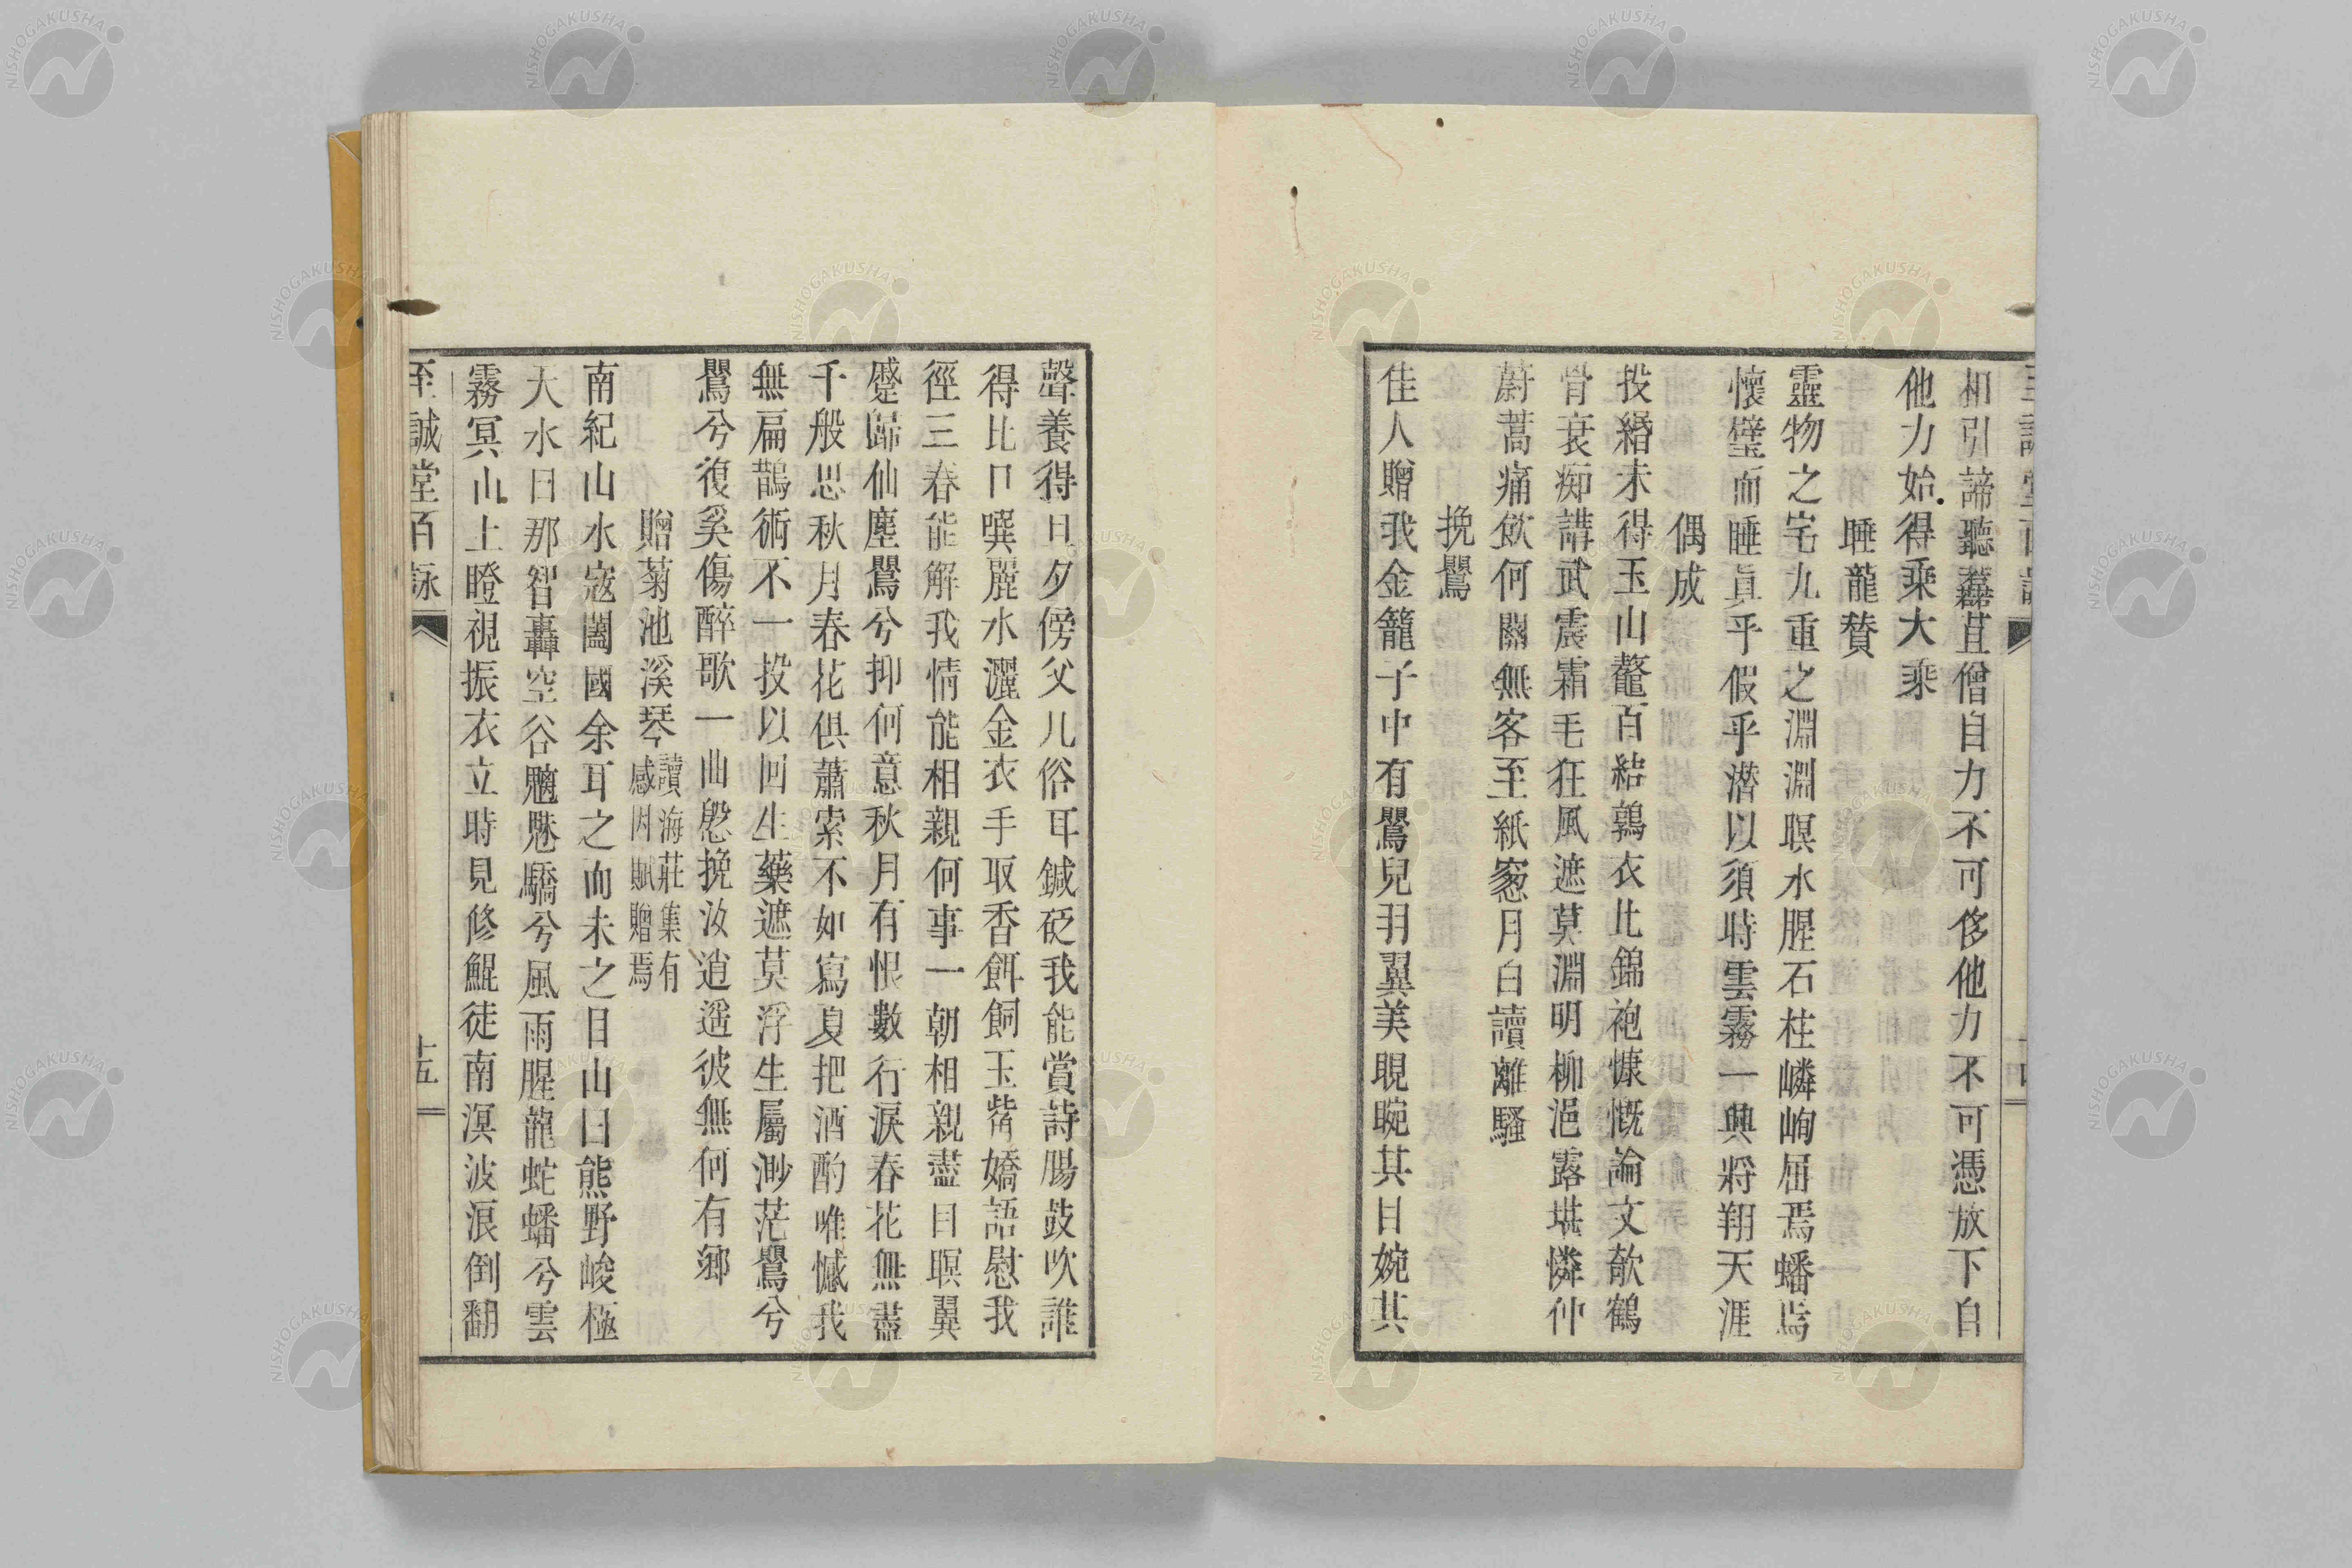 相引諦聽聾苴僧自力不可侈他力不可憑放下自
他力始得乘大乘
睡龍贊
靈物之宅九重之淵淵暝水腥石柱嶙峋屈焉蟠焉
懷璧而睡眞乎假乎潛以須時雲霧一興將翔天涯
偶成
投緡未得玉山鼇百結鶉衣比錦袍慷慨論文欹鶴
骨衰痴講武震霜毛狂風遮莫淵明柳浥露堪憐仲
蔚蒿痛飲何關無客至紙窓月白讀離騷
挽鸎
佳人贈我金籠子中有鸎兒羽翼美睍睆其目婉其
聲養得日夕傍父儿俗耳鍼砭我能賞詩腸鼓吹誰
得比口噀麗水灑金衣手取香餌飼玉觜嬌語慰我
徑三春能解我情能相親何事一朝相親盡目暝翼
蹙歸仙塵鸎兮抑何意秋月有恨數行淚春花無盡
千般思秋月春花倶蕭索不如寫眞把酒酌唯憾我
無扁鵲術不一投以回生藥遮莫浮生屬渺茫鸎兮
鸎兮復奚傷醉歌一曲慇挽汝逍遥彼無何有鄉
贈菊池溪琴 讀海莊集有感因賦贈焉
南紀山水寇闔國余耳之而未之目山曰熊野峻極
大水曰那智轟空谷魑魅驕兮風雨腥龍蛇蟠兮雲
霧冥山上瞪視振衣立時見修鯤徒南溟波浪倒翻
至誠堂百詠
十五
NISHOGAKUSHA